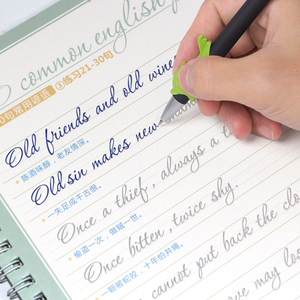 common english
句常用谚语 ③练习21-30句
Old friends and old wine
陈酒味醇,老友情深。
Old sin makes new
一失足成千古恨。
Once a thief, always a t
偷盗一次,做贼一世。
Once bitten, twice shy.
一朝被蛇咬,十年怕井绳。
cannot put back the clo
may los